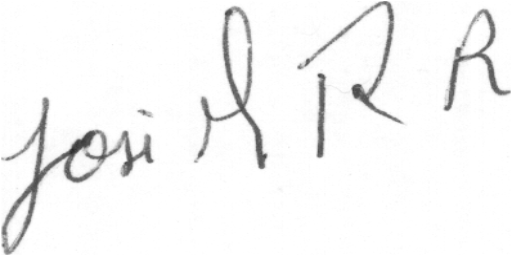 Josi M R R